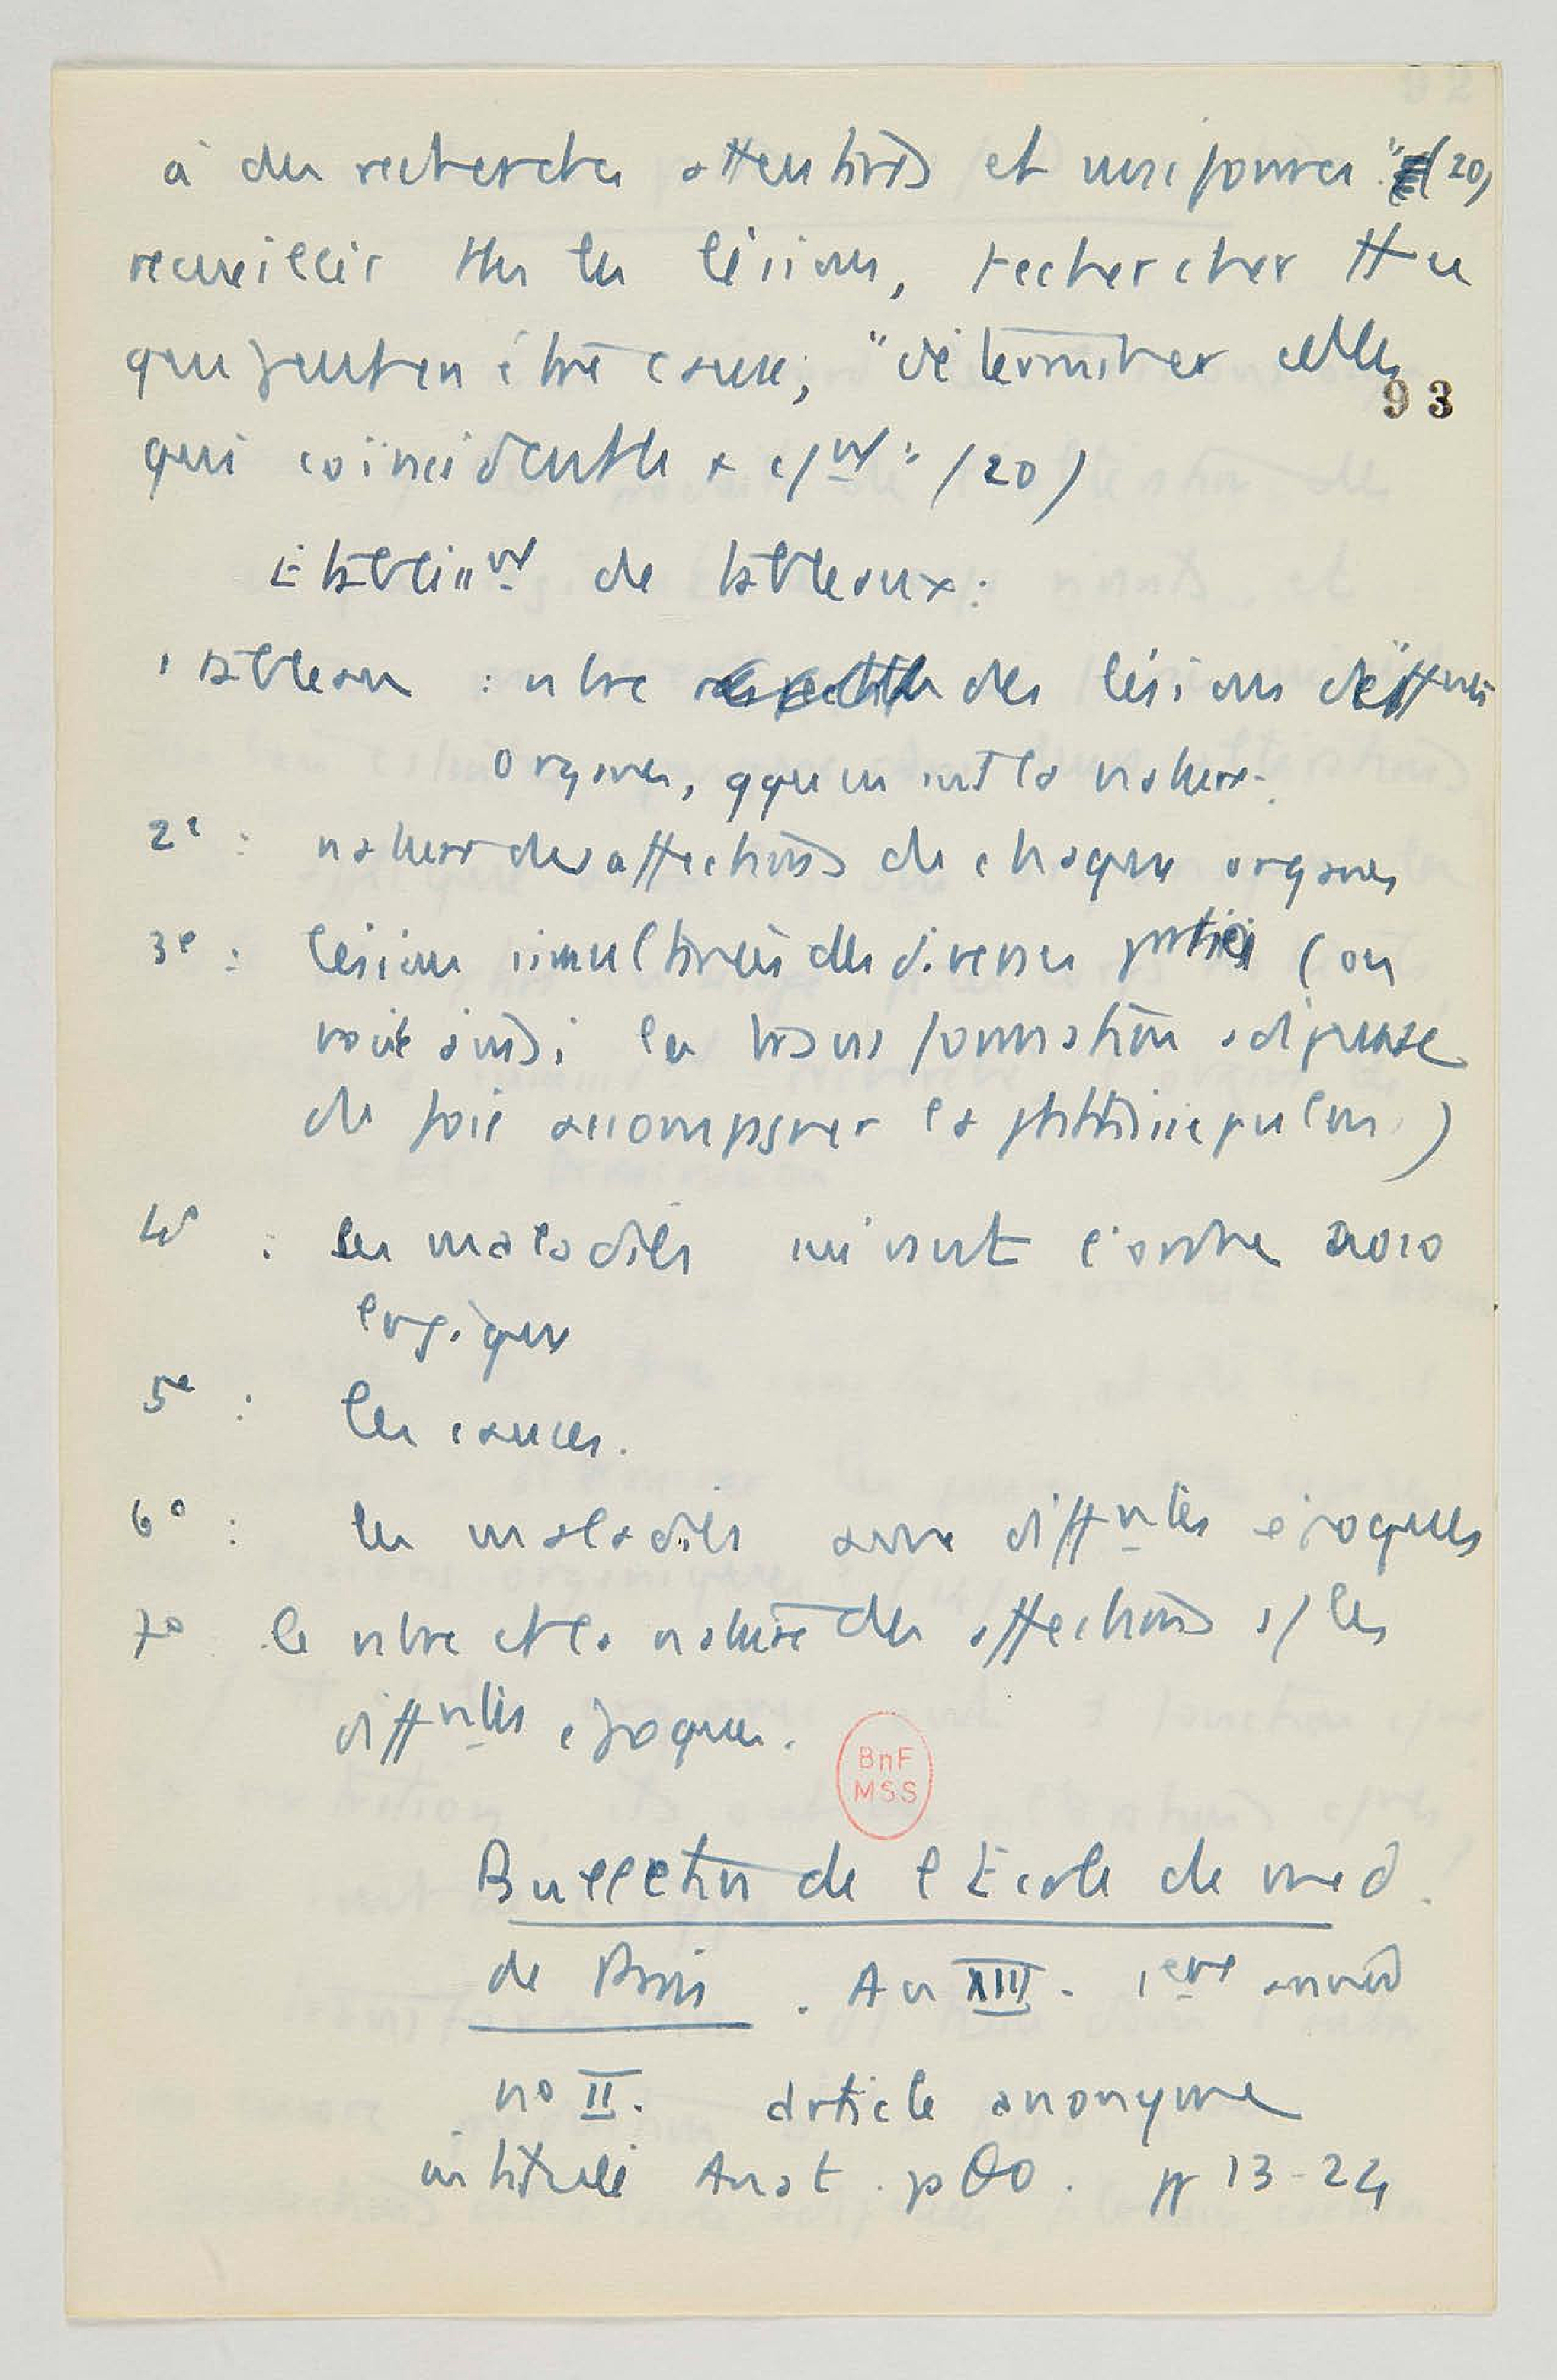 à des recherches attentives et uniformes". (20)
recueillir ttes les lésions, rechercher tt ce
qui peut en être cause, "déterminer celles
93
qui coïncident le + c/nt" (20)
Etablissnt de tableaux :
1 tableau : nbre des lésions des différents
organes, qque en soit la nature.
2e : nature des affections de chaque organes
3e : lésions simultanées des diverses parties (on
voit ainsi la transformation adipeuse
du foie accompagner la phthisie pulm.)
4e : les maladies suivant l'ordre noso
logique
5e : les causes.
6° : les maladies aux diffntes époques
7° le nbre et la nature des affections s/ les
diffntes époques.
BnF
MSS
Bulletin de l'Ecole de med.
de Paris . An XIII. 1ere année
no II. article anonyme
intitulé Anat. pθo. pp 13-24